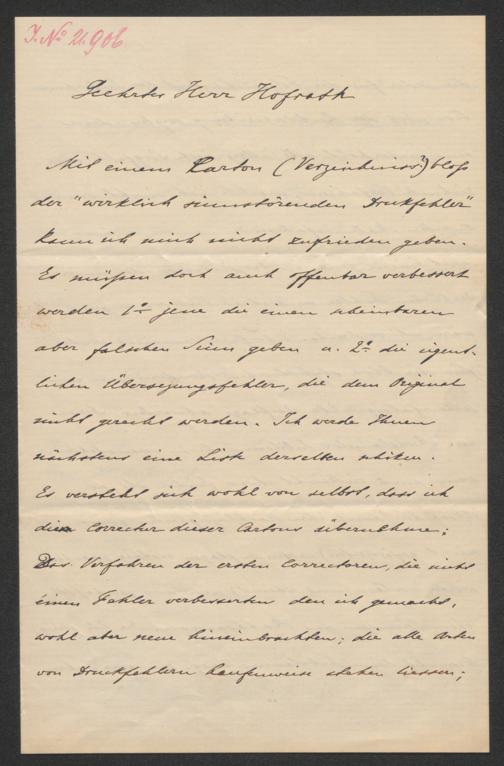 J. No 21.906
Geehrter Herr Hofrath
Mit einem Carton (Verzeichniss?) bloss
der "wirklich sinnstörenden Druckfehler"
kann ich mich nicht zufrieden geben.
Es müssen doch auch offenbar verbessert
werden 1o jene die einen scheinbaren
aber falschen Sinn geben u. 2o die eigent-
lichen Übersetzungsfehler, die dem Original
nicht gerecht werden. Ich werde Ihnen
nächstens eine Liste derselben schicken.
Es versteht sich wohl von selbst, dass ich
die Correctur dieser Cartons übernehme;
Das Verfahren der ersten Correctoren, die nicht
einen Fehler verbesserten den ich gemacht,
wohl aber neue hineinbrachten; die alle Arten
von Druckfehlern haufenweise stehen liessen;